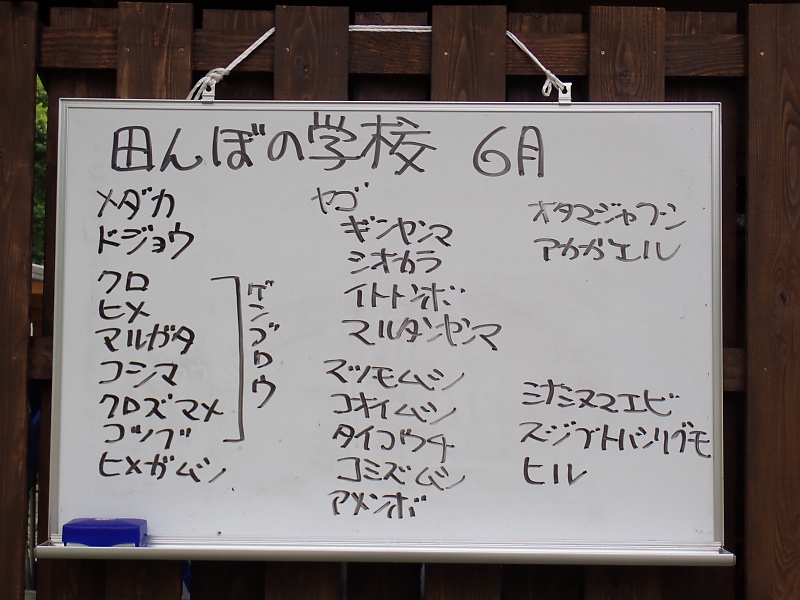 田んぼの学校 6月
メダカ
ドジョウ
クロ
ヒメ
マルガタ
コシマ
クロズマメ
コツブ
ゲンゴロウ
ヒメガムシ
ヤゴ
ギンヤンマ
シオカラ
イトトンボ
マルタンヤンマ
マツモムシ
コオイムシ
タイコウチ
コミズムシ
アメンボ
オタマジャクシ
アカガエル
ミナミヌマエビ
スジブトハシリグモ
ヒル